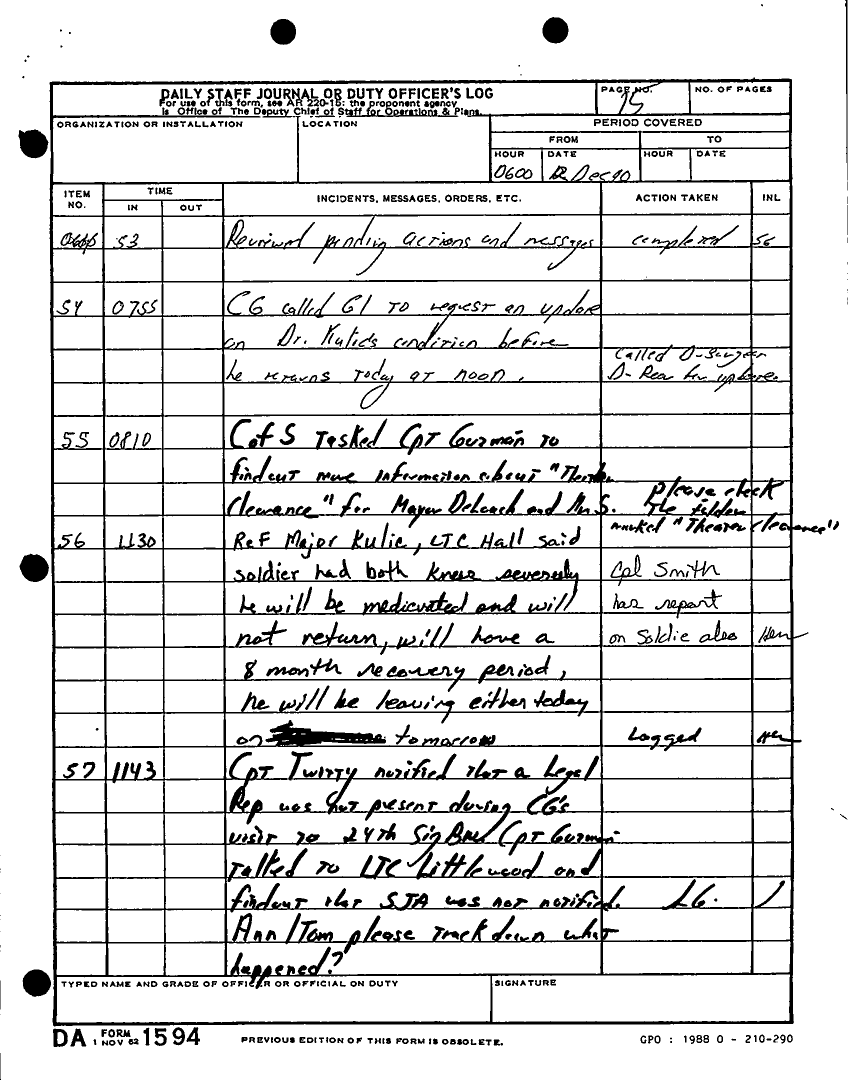 DAILY STAFF JOURNAL OR DUTY OFFICER'S LOG
For use of this form, see AR 220-15: the proponent agency
is Office of The Deputy Chief of Staff for Operations & Plans.
PAGE NO.
15
NO. OF PAGES
ORGANIZATION OR INSTALLATION
LOCATION
PERIOD COVERED
FROM
TO
HOUR
DATE
HOUR
DATE
0600
Dec 90
ITEM NO.
TIME
IN
OUT
INCIDENTS, MESSAGES, ORDERS, ETC.
ACTION TAKEN
INL
53 Reviewed pending actions and messages completed SG
54 0755 CG called G1 to request an update
on Dr. Kulic's condition before
he returns today at noon.
Called D-Surgeon
D-Rear for update.
55 0810 CofS Tasked Cpt Guzman to
findout more information about "Theater
Clearance" for Mayor DeLoach and Mr. S.
Please check
The folder
marked "Theater Clearance"
56 1130 Ref Major Kulic, LTC Hall said
soldier had both knees severely
he will be medivated and will
not return, will have a
8 month recovery period,
he will be leaving either today
or tomorrow
Cpl Smith
has report
on Soldie also
Logged
57 1143 Cpt Twitty notified that a Legal
Rep was not present during CG's
visit to 24th Sig Bn. Cpt Guzman
Talked to LTC Littlewood and
findout that SJA was not notified. LG.
Ann / Tom please track down what
happened?
TYPED NAME AND GRADE OF OFFICER OR OFFICIAL ON DUTY
SIGNATURE
DA FORM 1594
1 NOV 62
PREVIOUS EDITION OF THIS FORM IS OBSOLETE.
GPO : 1988 O - 210-290